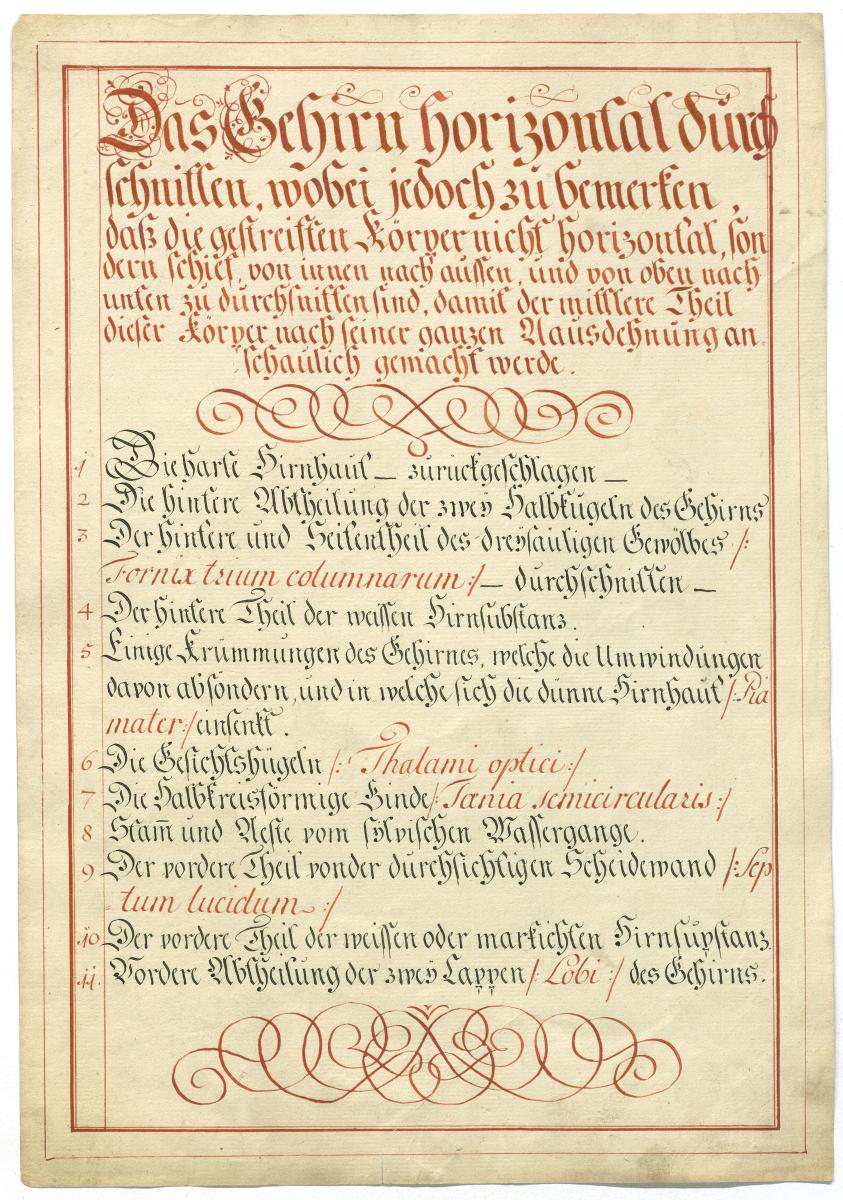 Das Gehirn horizontal durch
schnitten, wobei jedoch zu bemerken,
daß die gestreiften Körper nicht horizontal, son
dern schief, von innen nach aussen, und von oben nach
unten zu durchsnitten sind, damit der mittlere Theil
dieser Körper nach seiner ganzen Aausdehnung an
schaulich gemacht werde.
1 Die harte Hirnhaut — zurückgeschlagen —
2 Die hintere Abtheilung der zwey Halbkugeln des Gehirns
3 Der hintere und Seitentheil des dreysäuligen Gewölbes /:
Fornix trium columnarum :/ — durchschnitten —
4 Der hintere Theil der weissen Hirnsubstanz.
5 Einige Krümmungen des Gehirnes, welche die Umwindungen
davon absondern, und in welche sich die dünne Hirnhaut /: Pia
mater :/ einsenkt.
6 Die Gesichtshügeln /: Thalami optici :/
7 Die Halbkreisförmige Binde /: Tænia semicircularis :/
8 Stam̄ und Aeste vom sylvischen Wassergange.
9 Der vordere Theil von der durchsichtigen Scheidewand /: Sep
tum lucidum :/
10 Der vordere Theil der weissen oder markichten Hirnsupstanz.
11. Vordere Abtheilung der zwey Lappen /: Lobi :/ des Gehirns.